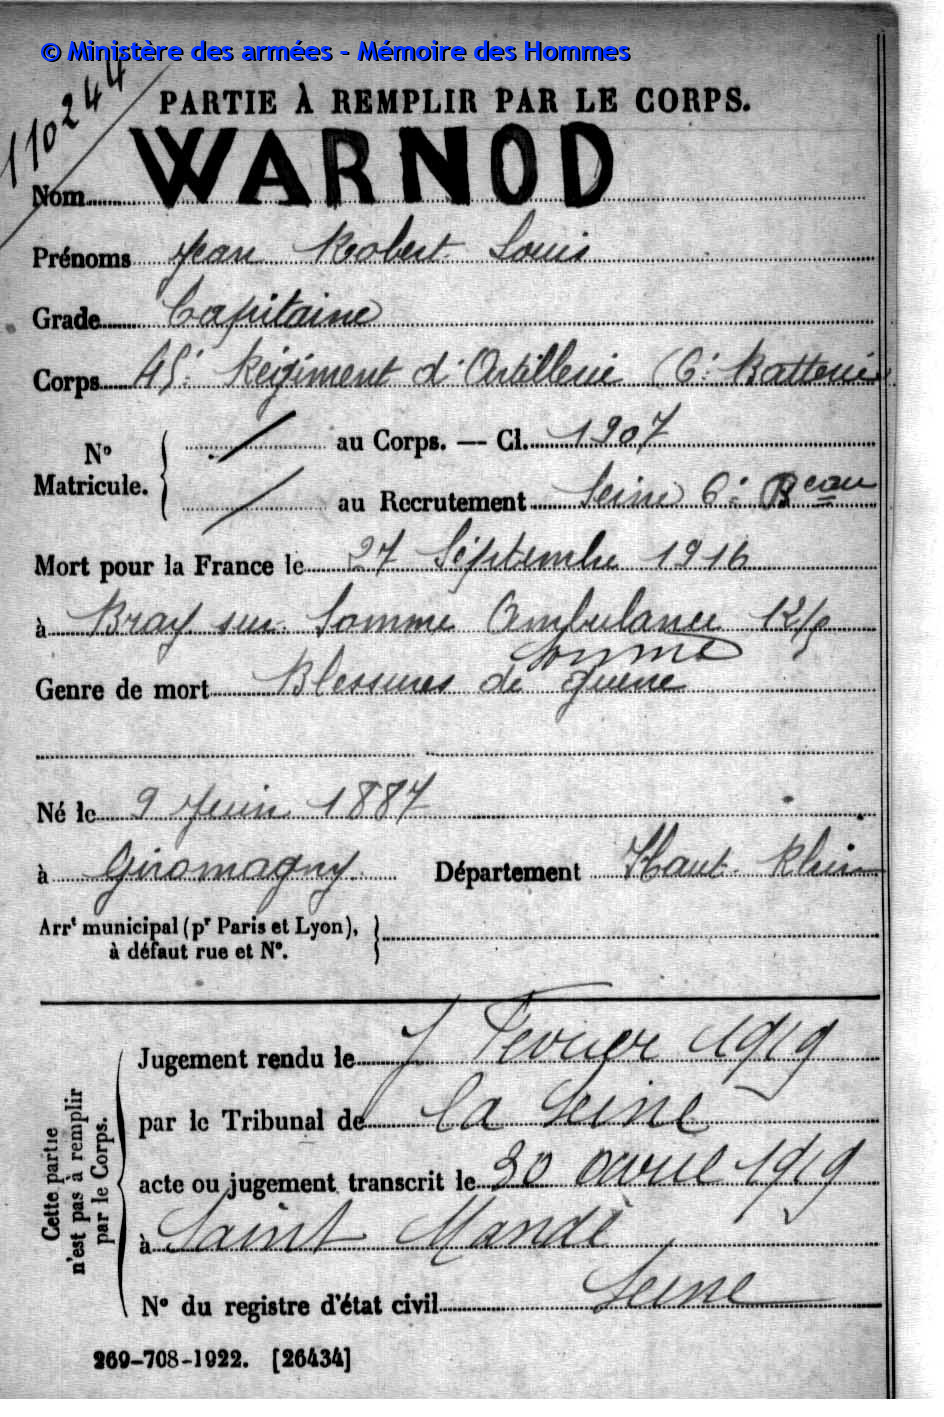 © Ministère des armées - Mémoire des Hommes
110244
PARTIE À REMPLIR PAR LE CORPS.
Nom WARNOD
Prénoms Jean Robert Louis
Grade Capitaine
Corps 45e Régiment d'Artillerie (6e Batterie
N° Matricule. { / au Corps. — Cl. 1907
/ au Recrutement Seine 6e Beau
Mort pour la France le 27 Septembre 1916
à Bray sur Somme Ambulance
Somme
Genre de mort Blessures de guerre
Né le 9 Juin 1887
à Giromagny Département Haut-Rhin
Arrt municipal (pr Paris et Lyon),
à défaut rue et N°.
Cette partie n'est pas à remplir par le Corps.
Jugement rendu le 7 Février 1919
par le Tribunal de la Seine
acte ou jugement transcrit le 30 avril 1919
à Saint Mandé
N° du registre d'état civil Seine
269-708-1922. [26434]